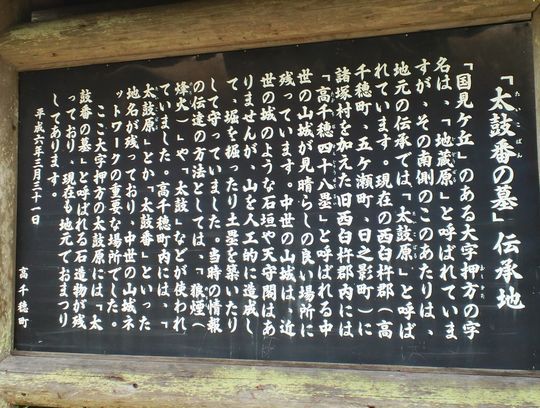 「太鼓番の墓」伝承地
「国見ケ丘」のある大字押方の字
名は、「地蔵原」と呼ばれていま
すが、その南側のこのあたりは、
地元の伝承では「太鼓原」と呼ば
れています。現在の西臼杵郡(高
千穂町、五ヶ瀬町、日之影町)に
諸塚村を加えた旧西臼杵郡内には
「高千穂四十八塁」と呼ばれる中
世の山城が見晴らしの良い場所に
残っています。中世の山城は、近
世の城のような石垣や天守閣はあ
りませんが、山を人工的に造成し
て、堀を掘ったり土塁を築いたり
して守っていました。当時の情報
の伝達の方法としては、「狼煙(
烽火)」や「太鼓」などが使われ
ていました。高千穂町内には、「
太鼓原」とか「太鼓番」といった
地名が残っており、中世の山城ネ
ットワークの重要な場所でした。
ここ大字押方の太鼓原には「太
鼓番の墓」と呼ばれる石造物が残
っており、現在も地元でおまつり
してあります。
平成六年三月三十一日
高千穂町